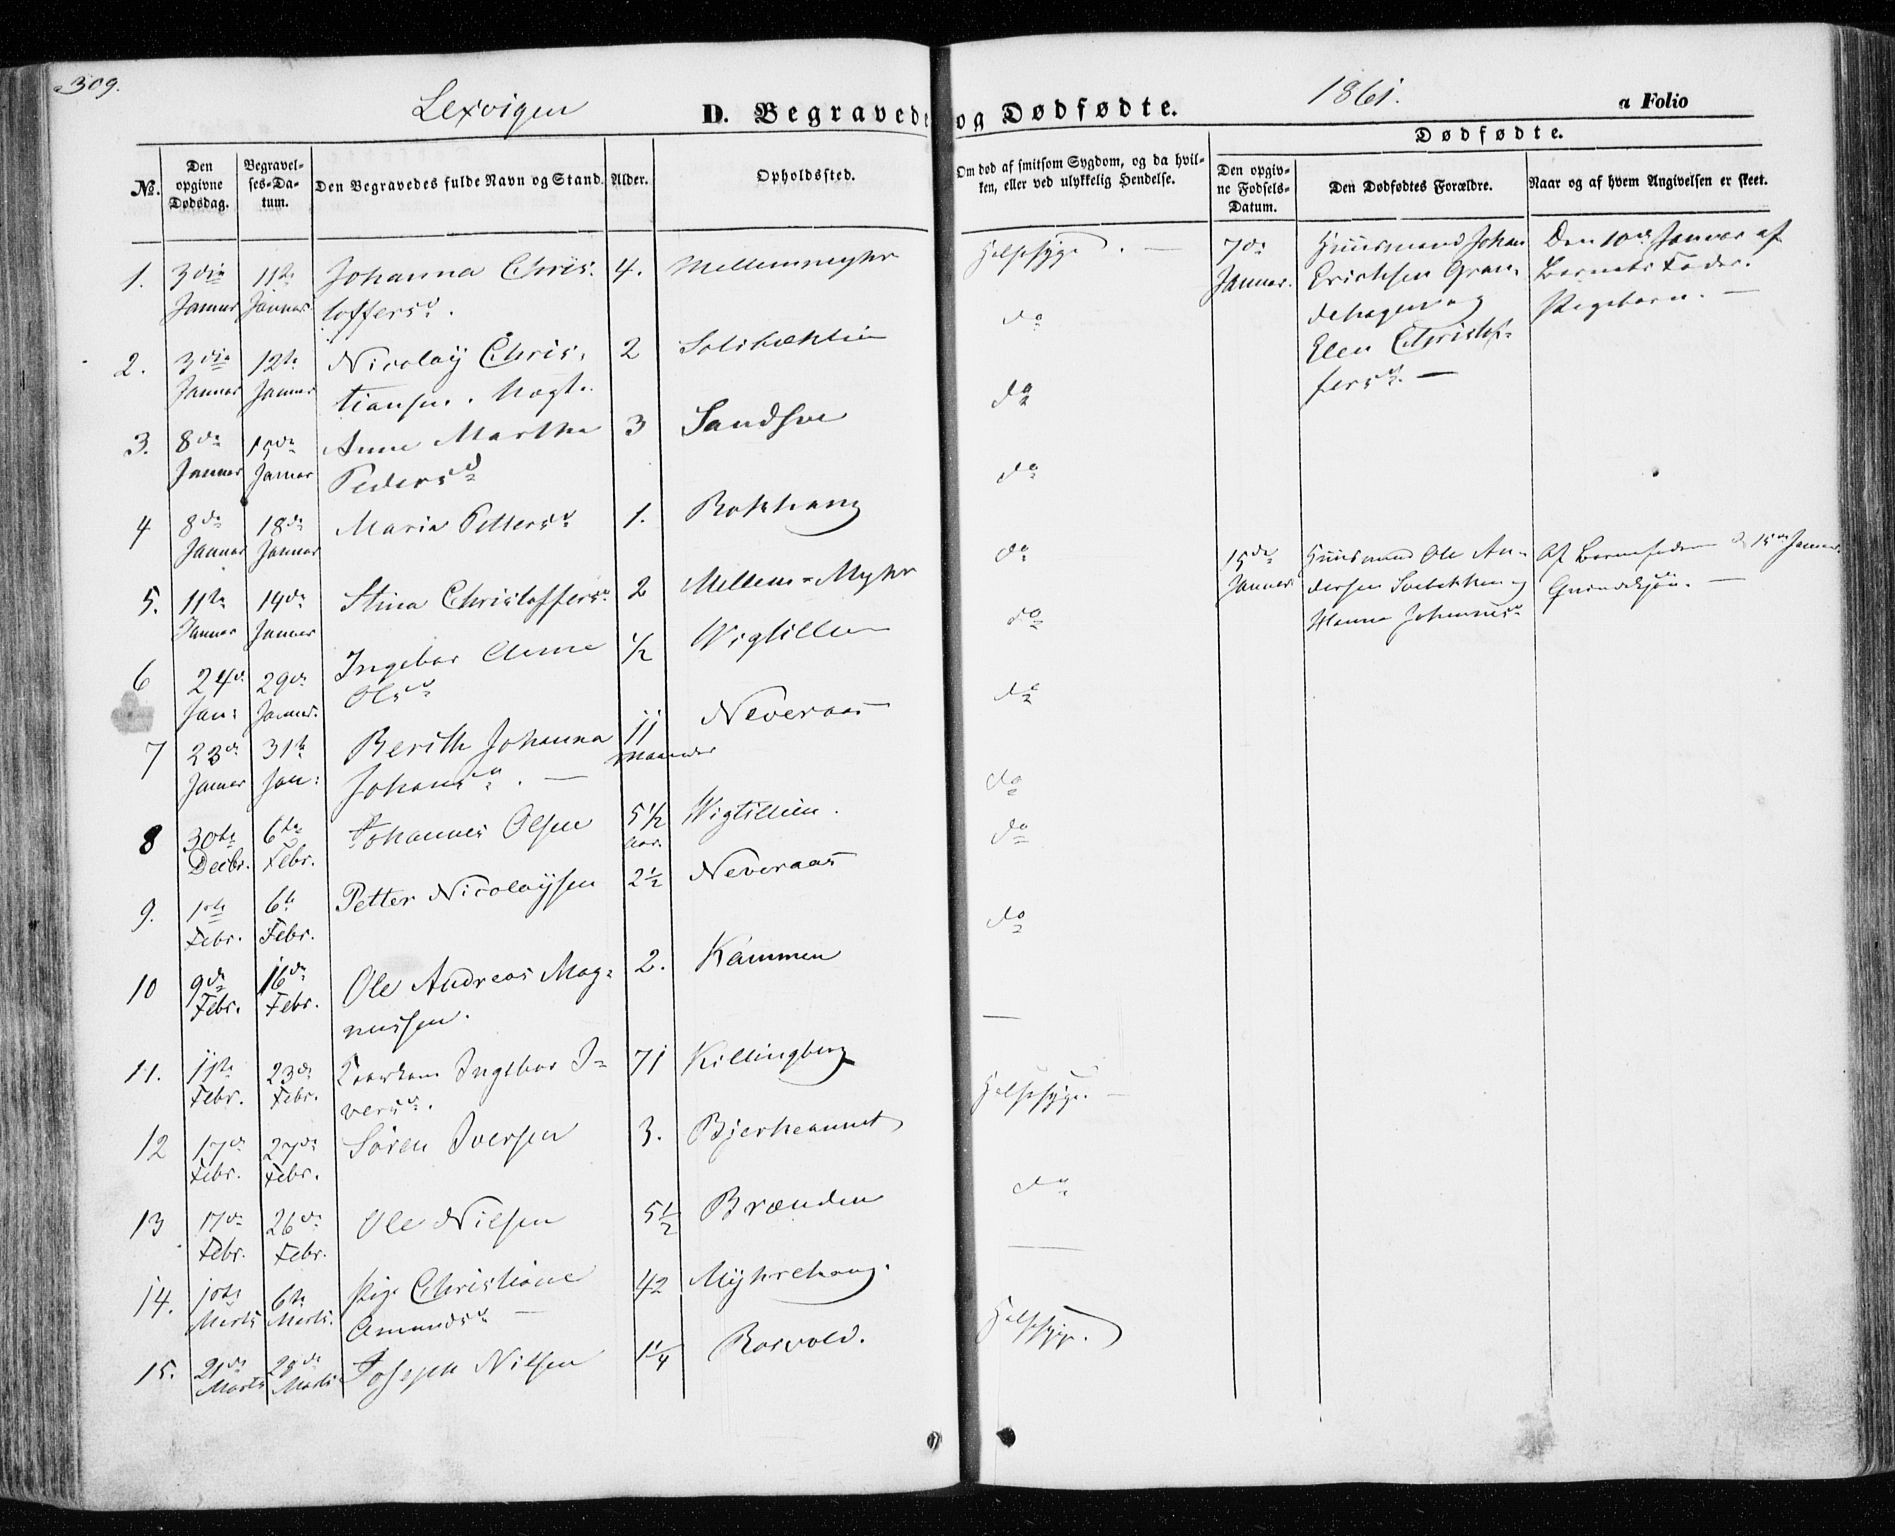 309.
Lexvigen
D. Begravede og Dødfødte.
1861.
a Folio
Dødfødte.
No.
Den opgivne Dødsdag.
Begravelses-Datum.
Den Begravedes fulde Navn og Stand.
Alder.
Opholdssted.
Om død af smitsom Sygdom, og da hvilken, eller ved ulykkelig Hendelse.
Den opgivne Fødsels-Datum.
Den Dødfødtes Forældre.
Naar og af hvem Angivelsen er skeet.
1. 3die Januar 11te Januar Johanna Christoffersd. 4. Mellemmyhr Halssyge.
2. 3die Januar 12te Januar Nicolay Christiansen. 2 do
3. 8de Januar 15de Januar Anne Martha Pedersd 3 Sandhve do
4 8de Januar 18de Januar Maria Pettersd 1. Rokhaug do
5. 11te Januar 19de Januar Stina Christoffersd 2 Mellem-Myhr do
6 24de Jan: 29de Januar. Ingebor Anna Olsd 1/2 Wigtillien do
7 23de Januar 31te Jan: Berith Johanna Johansd. 11 Maaneder Neveraas do
8 30te Decbr. 6te Febr. Johannes Olsen 5 1/2 Aar. Wigtillien. do
9. 1ste Febr. 6te Febr. Petter Nicolaysen 2 1/2 Neveraas do
10 9de Febr. 16de Febr. Ole Andreas Magnussen. 2. Kammen do
11. 11te Febr. 23de Febr. Ingebor Iversd. 71 Killingberg —
12 17de Febr. 27de Febr. Sören Iversen 3. Bjerkeaunet Halssyge.
13 17de Febr. 26de Febr. Ole Nilsen 5 1/2 Brænden do
14. 1ste Marts 6te Marts. Pige Christiane Amundsd 42 Myhrehaug. —
15. 21de Marts 29de Marts Joseph Nilsen 1 1/4 Rosvold. Halssyge.
7de Januar. Huusmand Johan Erichsen Grandehagen og Elen Christoffersd. Den 10de Januar af Barnets Fader. Pigebarn.
15de Januar. Huusmand Ole Andersen og Hanna Johannesd Af Barnefaderen d. 15de Januar.